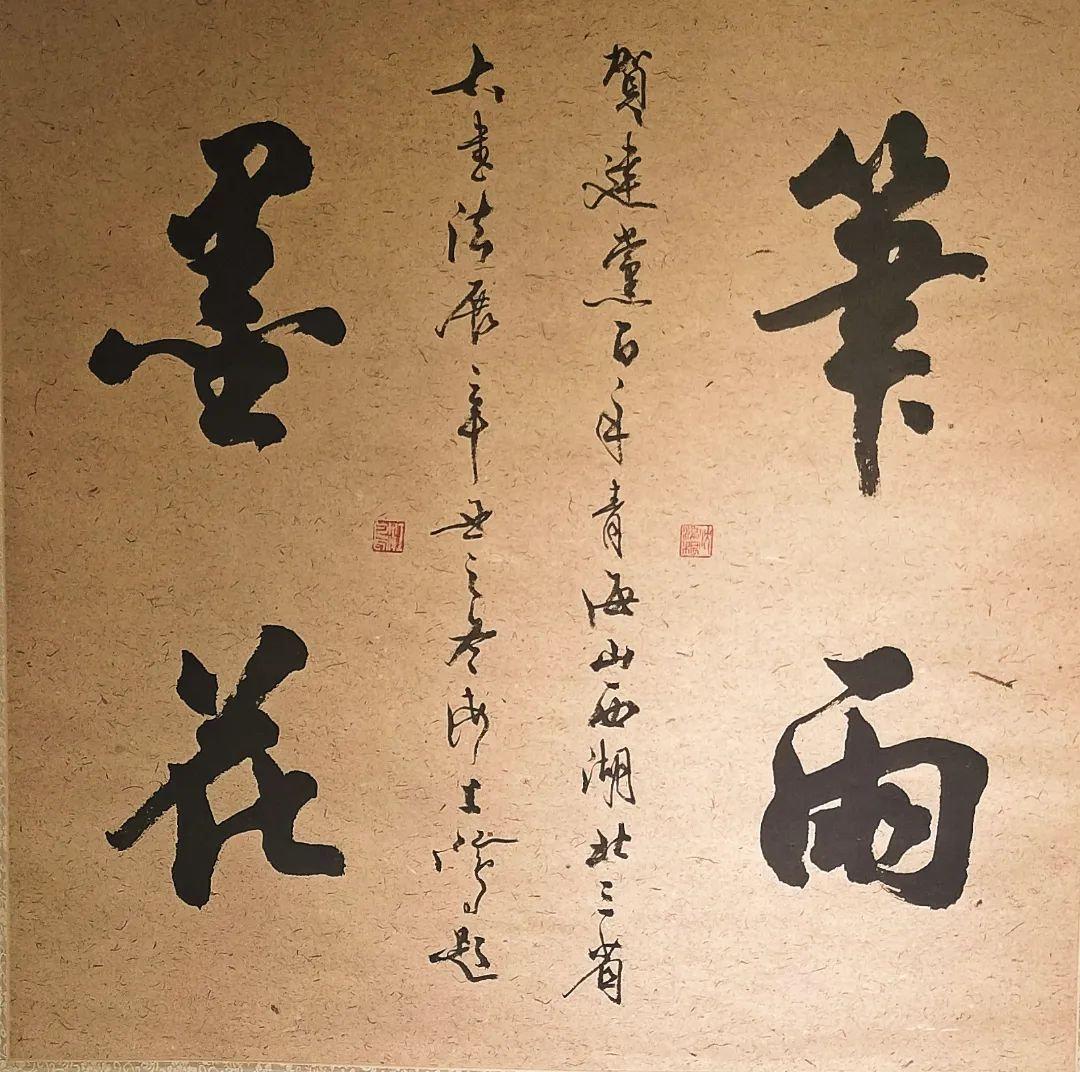 筆雨
賀建黨百年青海山西湖北三省
書法展辛丑之題
墨花